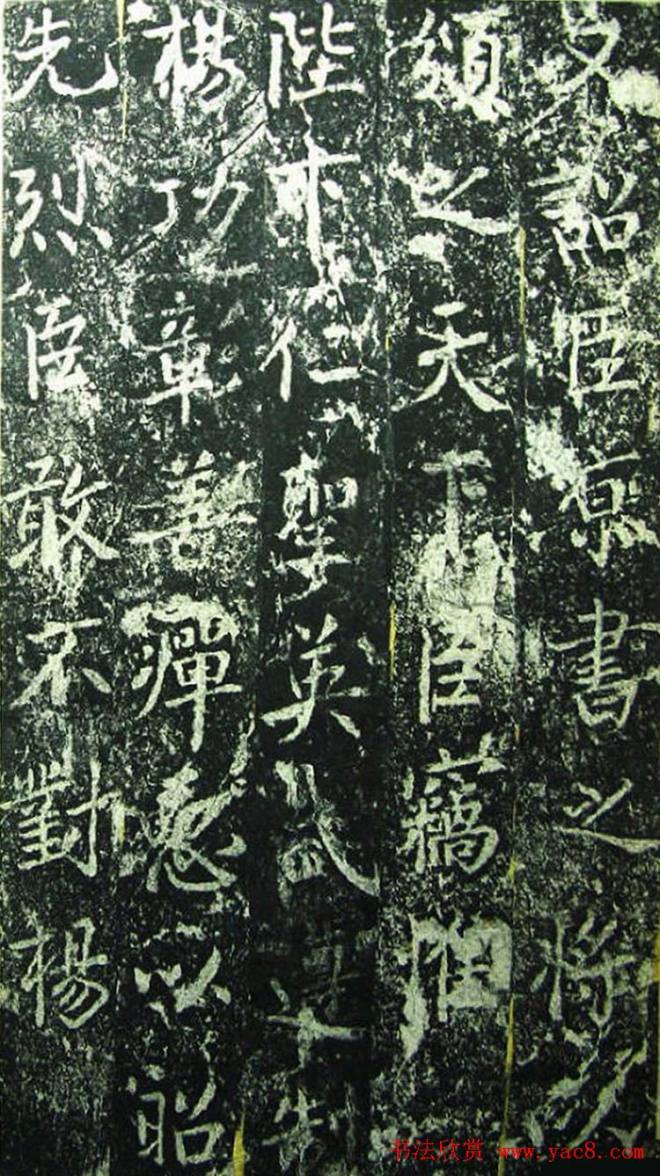 又詔臣京書之將以
頒之天下臣竊惟
陛下仁聖英武遵制
揚功章善癉惡以昭
先烈臣敢不對揚
书法欣赏 www.yac8.com